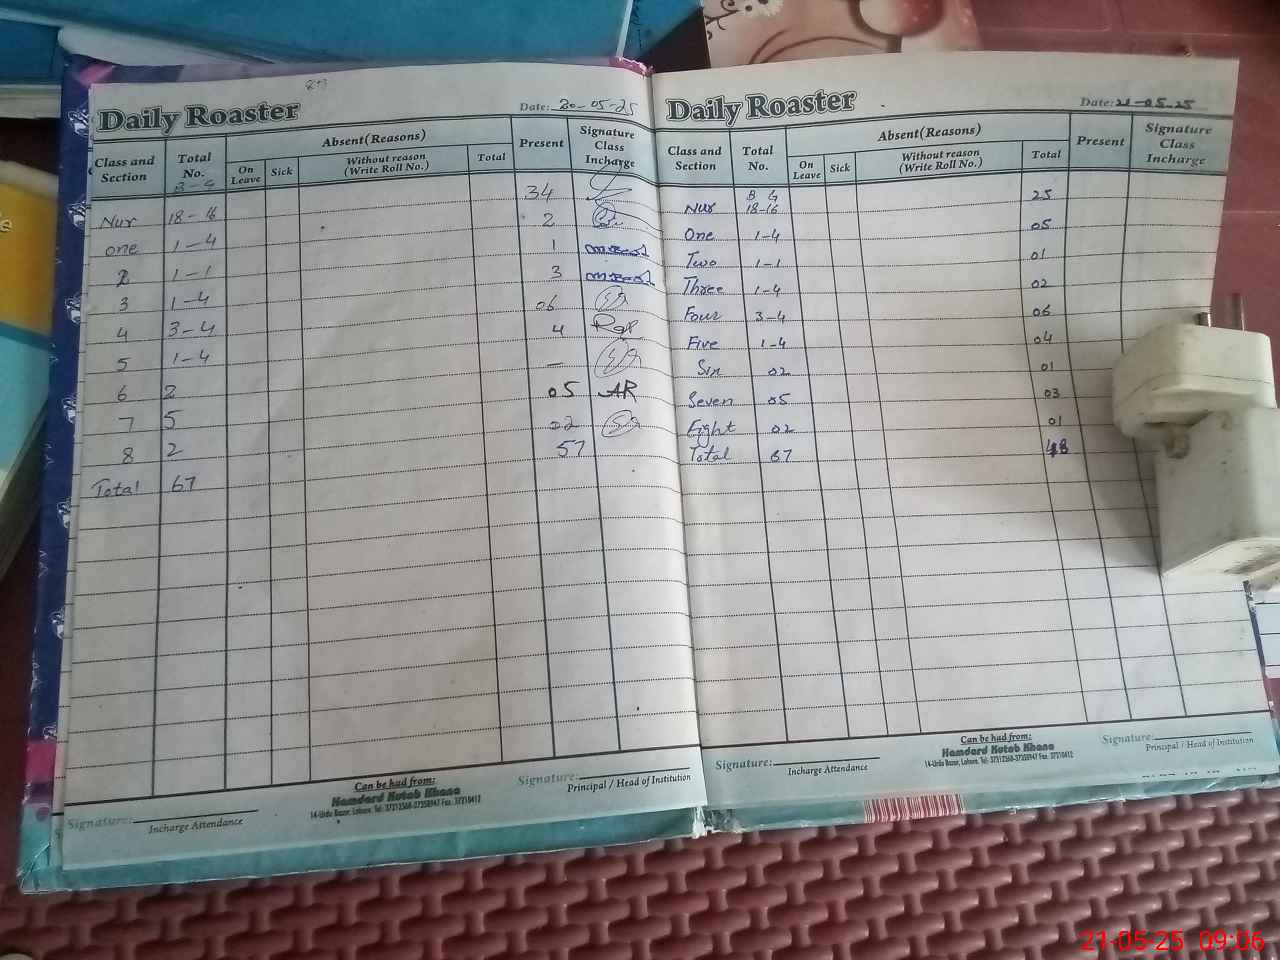 Daily Roaster
Date: 20-05-25
Class and Section
Total No.
Absent(Reasons)
On Leave
Sick
Without reason (Write Roll No.)
Total
Present
Signature Class Incharge
B-G
34
Nur 18-16 2
one 1-4 1
2 1-1 3
3 1-4 06
4 3-4 4
5 1-4 —
6 2 05 AR
7 5 02
8 2 57
Total 67
Signature:
Incharge Attendance
Can be had from:
Hamdard Kutab Khana
14-Urdu Bazar, Lahore. Tel: 37312568-37358947 Fax: 37218412
Signature:
Principal / Head of Institution
Daily Roaster
Date: 21-05-25
Class and Section
Total No.
Absent(Reasons)
On Leave
Sick
Without reason (Write Roll No.)
Total
Present
Signature Class Incharge
B G
Nur 18-16 25
One 1-4 05
Two 1-1 01
Three 1-4 02
Four 3-4 06
Five 1-4 04
Six 02 01
Seven 05 03
Eight 02 01
Total 67 48
Signature:
Incharge Attendance
Can be had from:
Hamdard Kutab Khana
14-Urdu Bazar, Lahore. Tel: 37312568-37358947 Fax: 37218412
Signature:
Principal / Head of Institution
21-05-25 09:06